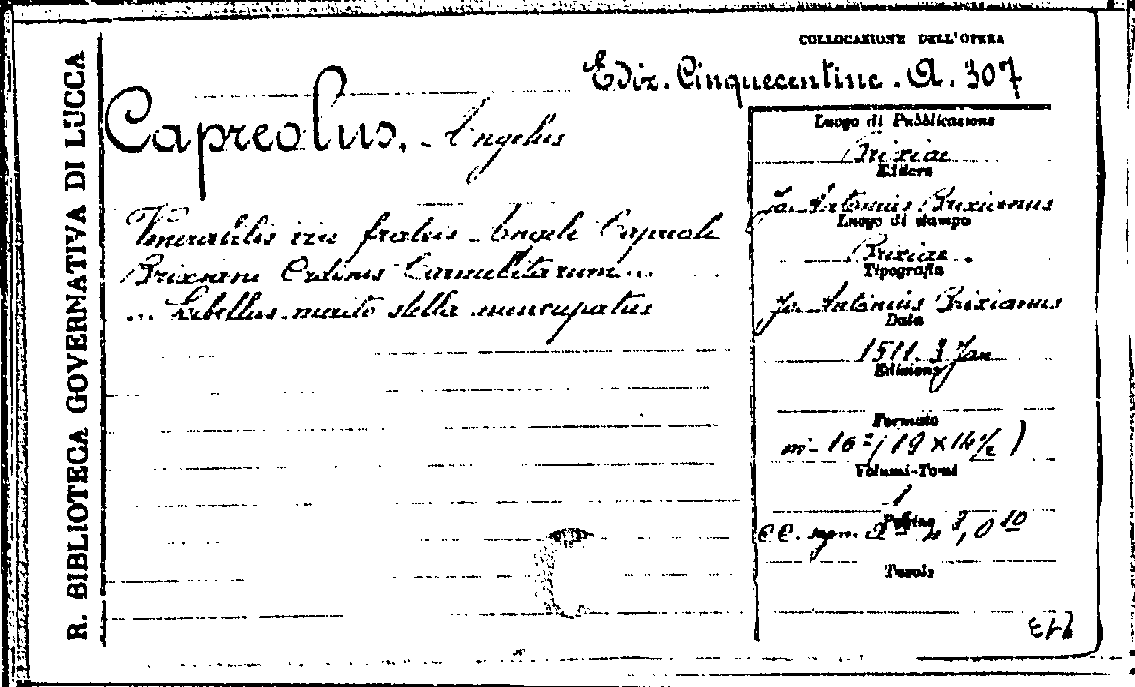 R. BIBLIOTECA GOVERNATIVA DI LUCCA
COLLOCAZIONE DELL'OPERA
Ediz. Cinquecentine. A. 307
Capreolus, Angelus
Venerabilis viri fratris Angeli Capreoli
Brixiani Ordinis Carmelitarum...
... Libellus merito stella nuncupatus
Luogo di Pubblicazione
Brixiae
Editore
Jo. Antonius Brixianus
Luogo di stampa
Brixiae.
Tipografia
Jo. Antonius Brixianus
Data
1511. 3 Jan
Edizione
Formato
in-16º (19 x 14½)
Volumi-Tomi
1
Pagine
CC. segn.
Tavole